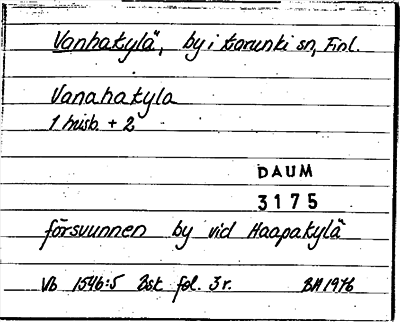 Vanhakylä, by i Karunki sn, Finl.
Vanahakyla
1 husb. + 2
DAUM
3175
försvunnen by vid Haapakylä
Vb 1546:5 Bsk fol. 3r. BH 1976